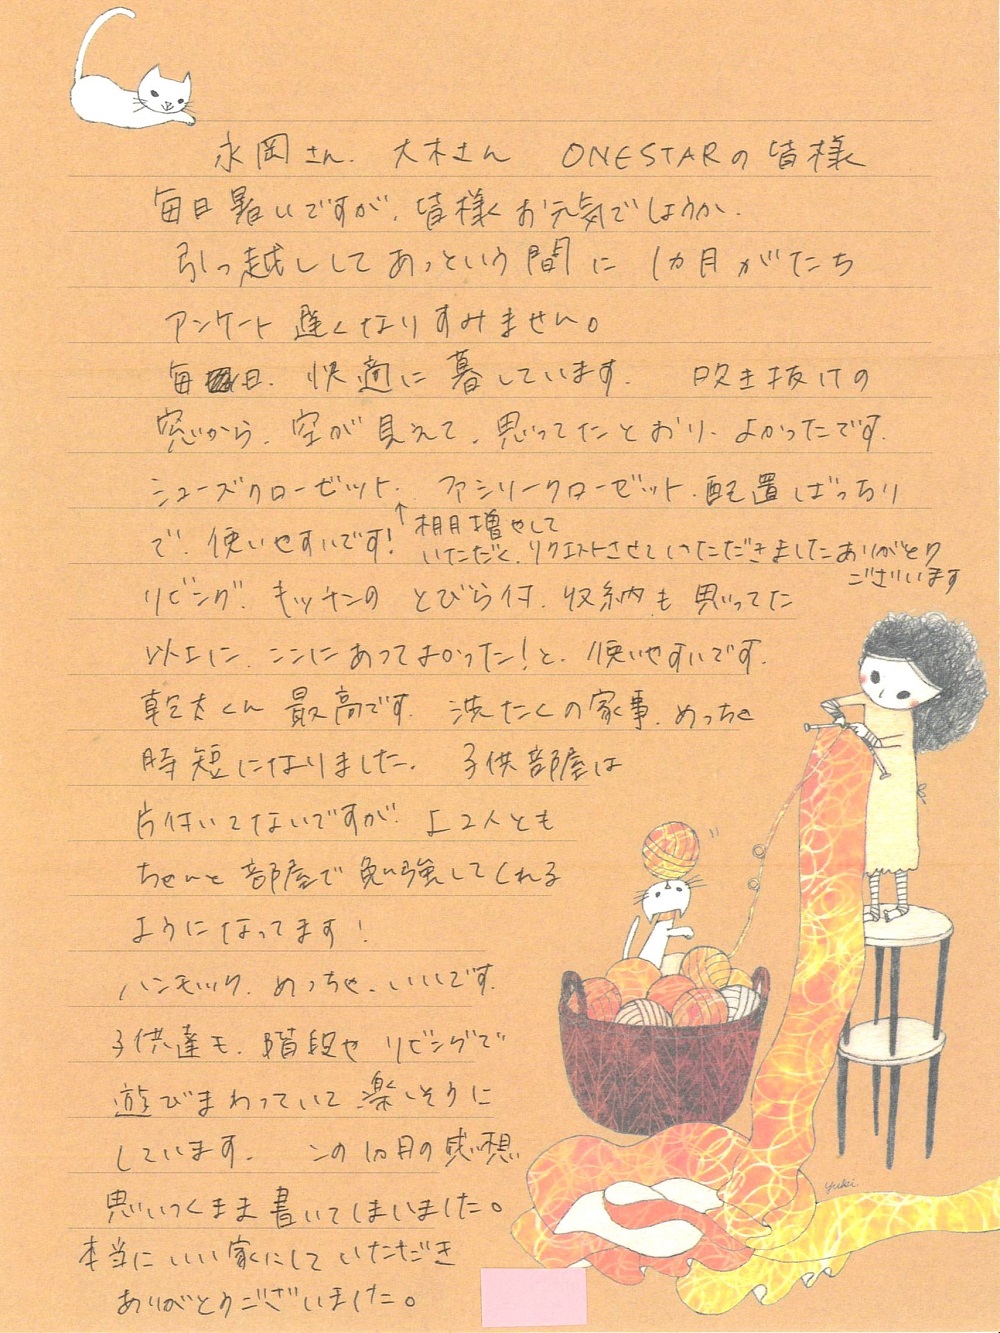 永岡さん、大木さん ONESTARの皆様
毎日暑いですが、皆様お元気でしょうか、
引っ越ししてあっという間に 1カ月がたち
アンケート遅くなりすみません。
毎日、快適に暮しています。 吹き抜けの
窓から、空が見えて、思ってたとおり、よかったです。
シューズクローゼット、ファミリークローゼット、配置ばっちり
で、使いやすいです!
↑棚増やして
いただく、リクエストさせていただきましたありがとう
ございます
リビング、キッチンの とびら付、収納も思ってた
以上に、ここにあってよかった!と、使いやすいです。
乾太くん 最高です。 洗たくの家事、めっちゃ
時短になりました。 子供部屋は
片付いてないですが、2人とも
ちゃんと部屋で勉強してくれる
ようになってます!
ハンモック、めっちゃ、いいです。
子供達も、階段や リビングで
遊びまわっていて楽しそうに
しています。 この1カ月の感想
思いつくまま書いてしまいました。
本当にいい家にして いただき
ありがとうございました。
yuki.